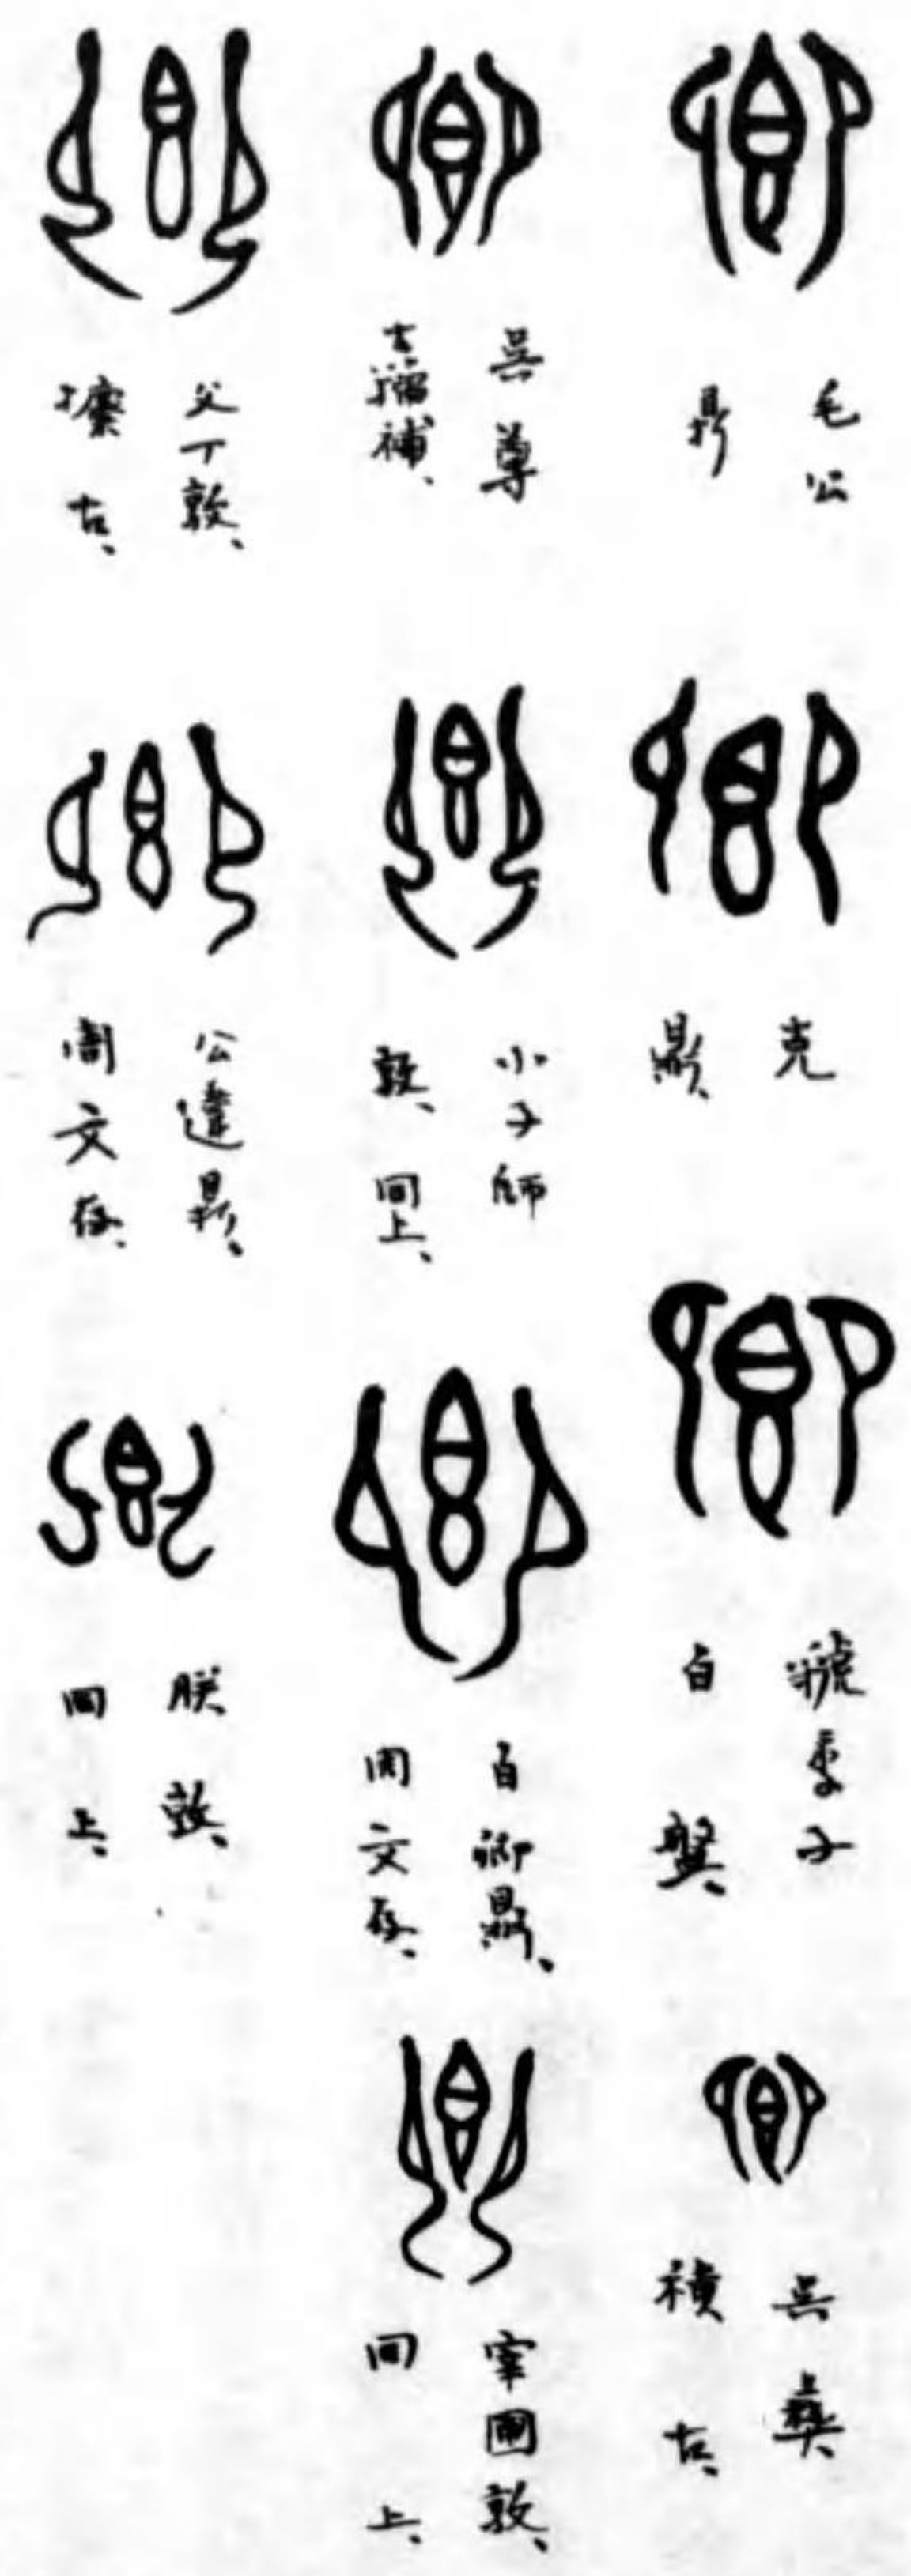 卿
毛公
鼎
卿
克
鼎、
卿
虢季子
白盤、
卿
吳彝、
積古、
卿
吳尊
古籀補、
卿
小子師
敦、同上、
卿
白御鼎、
周文存、
卿
宰圃敦、
同上、
卿
父丁敦、
攈古、
卿
公違鼎、
周文存、
卿
朕敦、
同上、